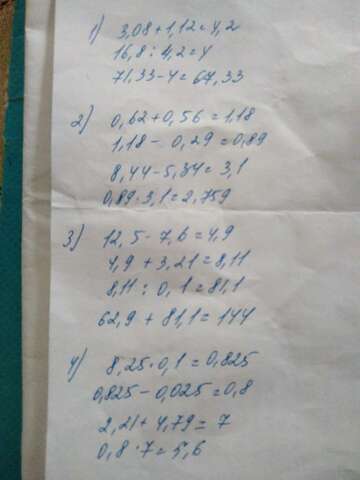 1) 3,08+1,12=4,2
16,8:4,2=4
71,33-4=67,33
2) 0,62+0,56=1,18
1,18-0,29=0,89
8,44-5,34=3,1
0,89·3,1=2,759
3) 12,5-7,6=4,9
4,9+3,21=8,11
8,11:0,1=81,1
62,9+81,1=144
4) 8,25·0,1=0,825
0,825-0,025=0,8
2,21+4,79=7
0,8·7=5,6